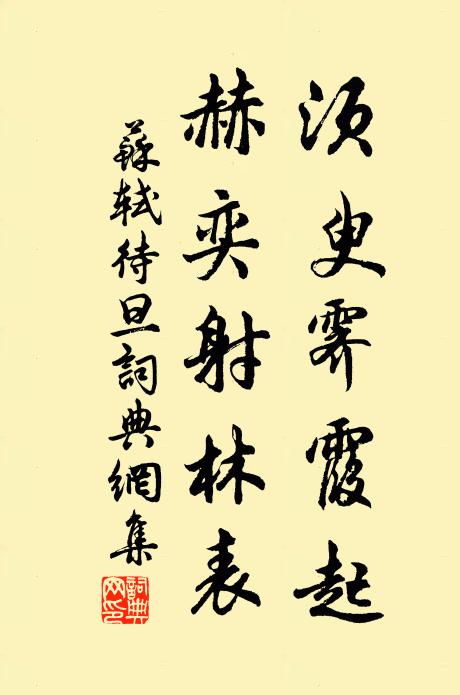 須臾霽霞起
赫奕射林表
蘇軾待旦詞典網集
詞典網印